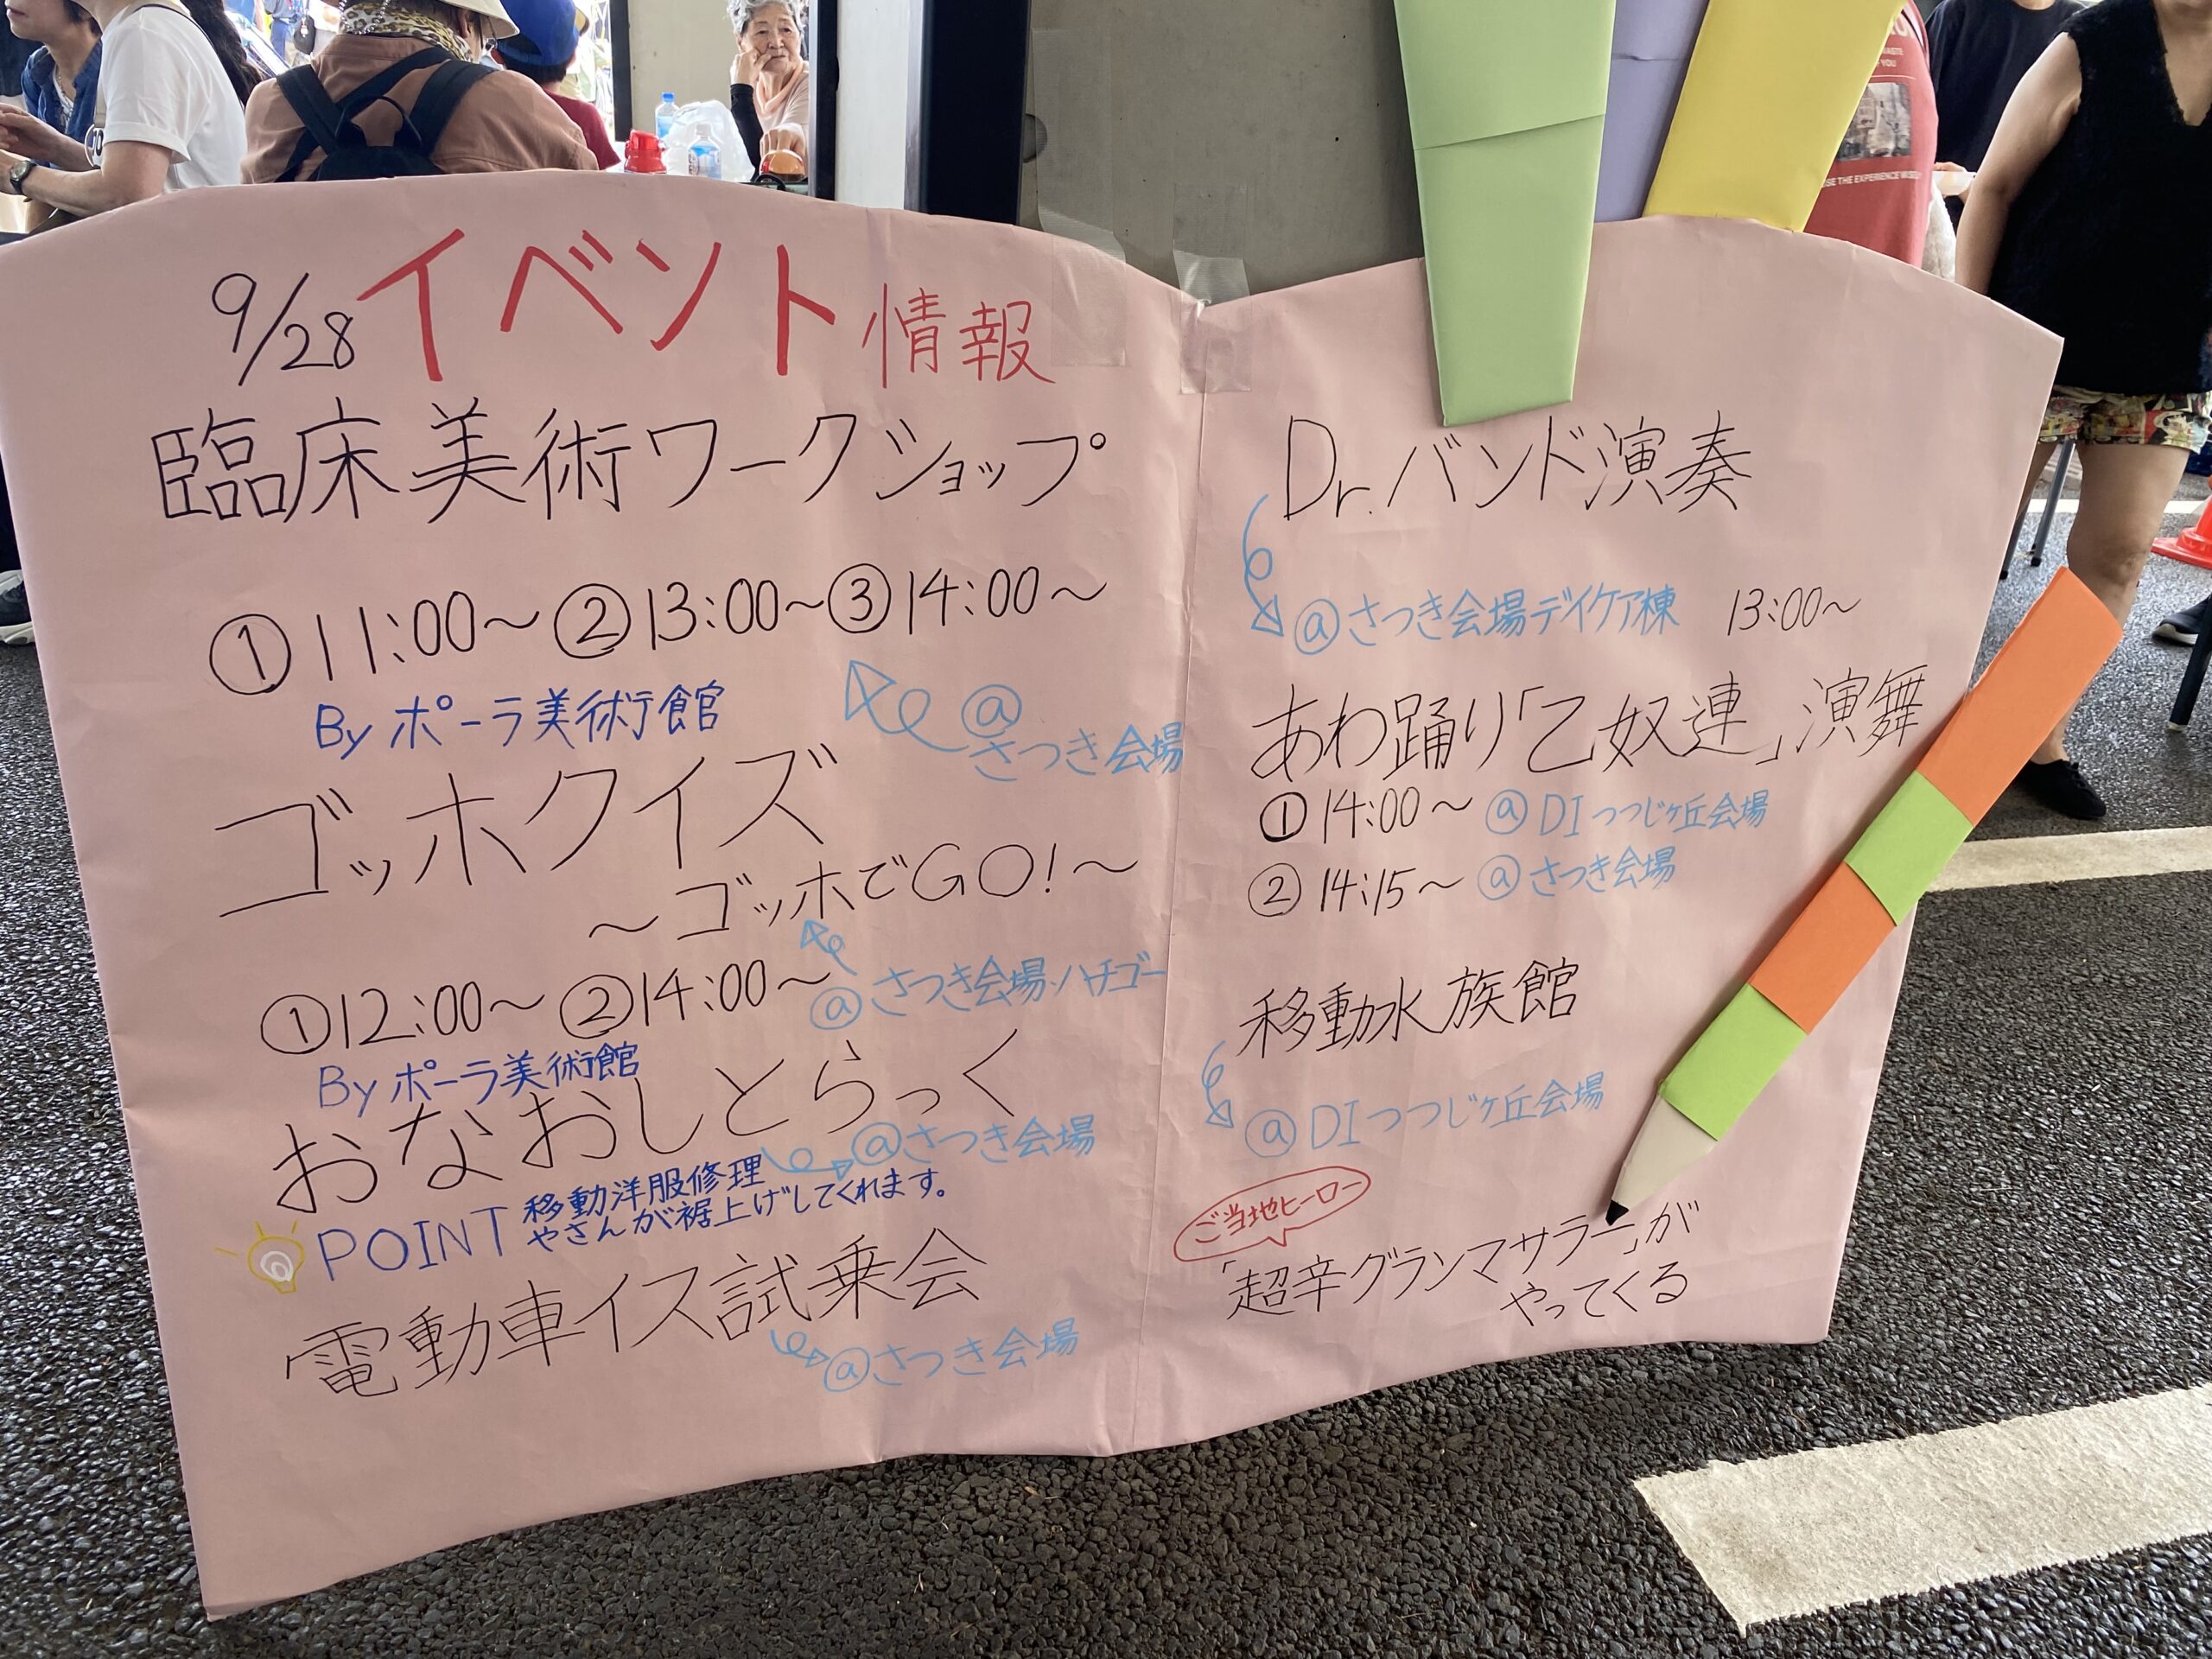 9/28イベント情報
臨床美術ワークショップ
①11:00～②13:00～③14:00～
Byポーラ美術館
@
さつき会場
ゴッホクイズ
～ゴッホでGO!～
①12:00～②14:00～
@さつき会場・ハチゴー
Byポーラ美術館
おなおしとらっく
@さつき会場
POINT 移動洋服修理
やさんが裾上げしてくれます。
電動車イス試乗会
@さつき会場
Dr.バンド演奏
@さつき会場デイケア棟 13:00～
あわ踊り「乙奴連」演舞
①14:00～@DIつつじヶ丘会場
②14:15～@さつき会場
移動水族館
@DIつつじヶ丘会場
ご当地ヒーロー
「超辛グランマサラー」が
やってくる